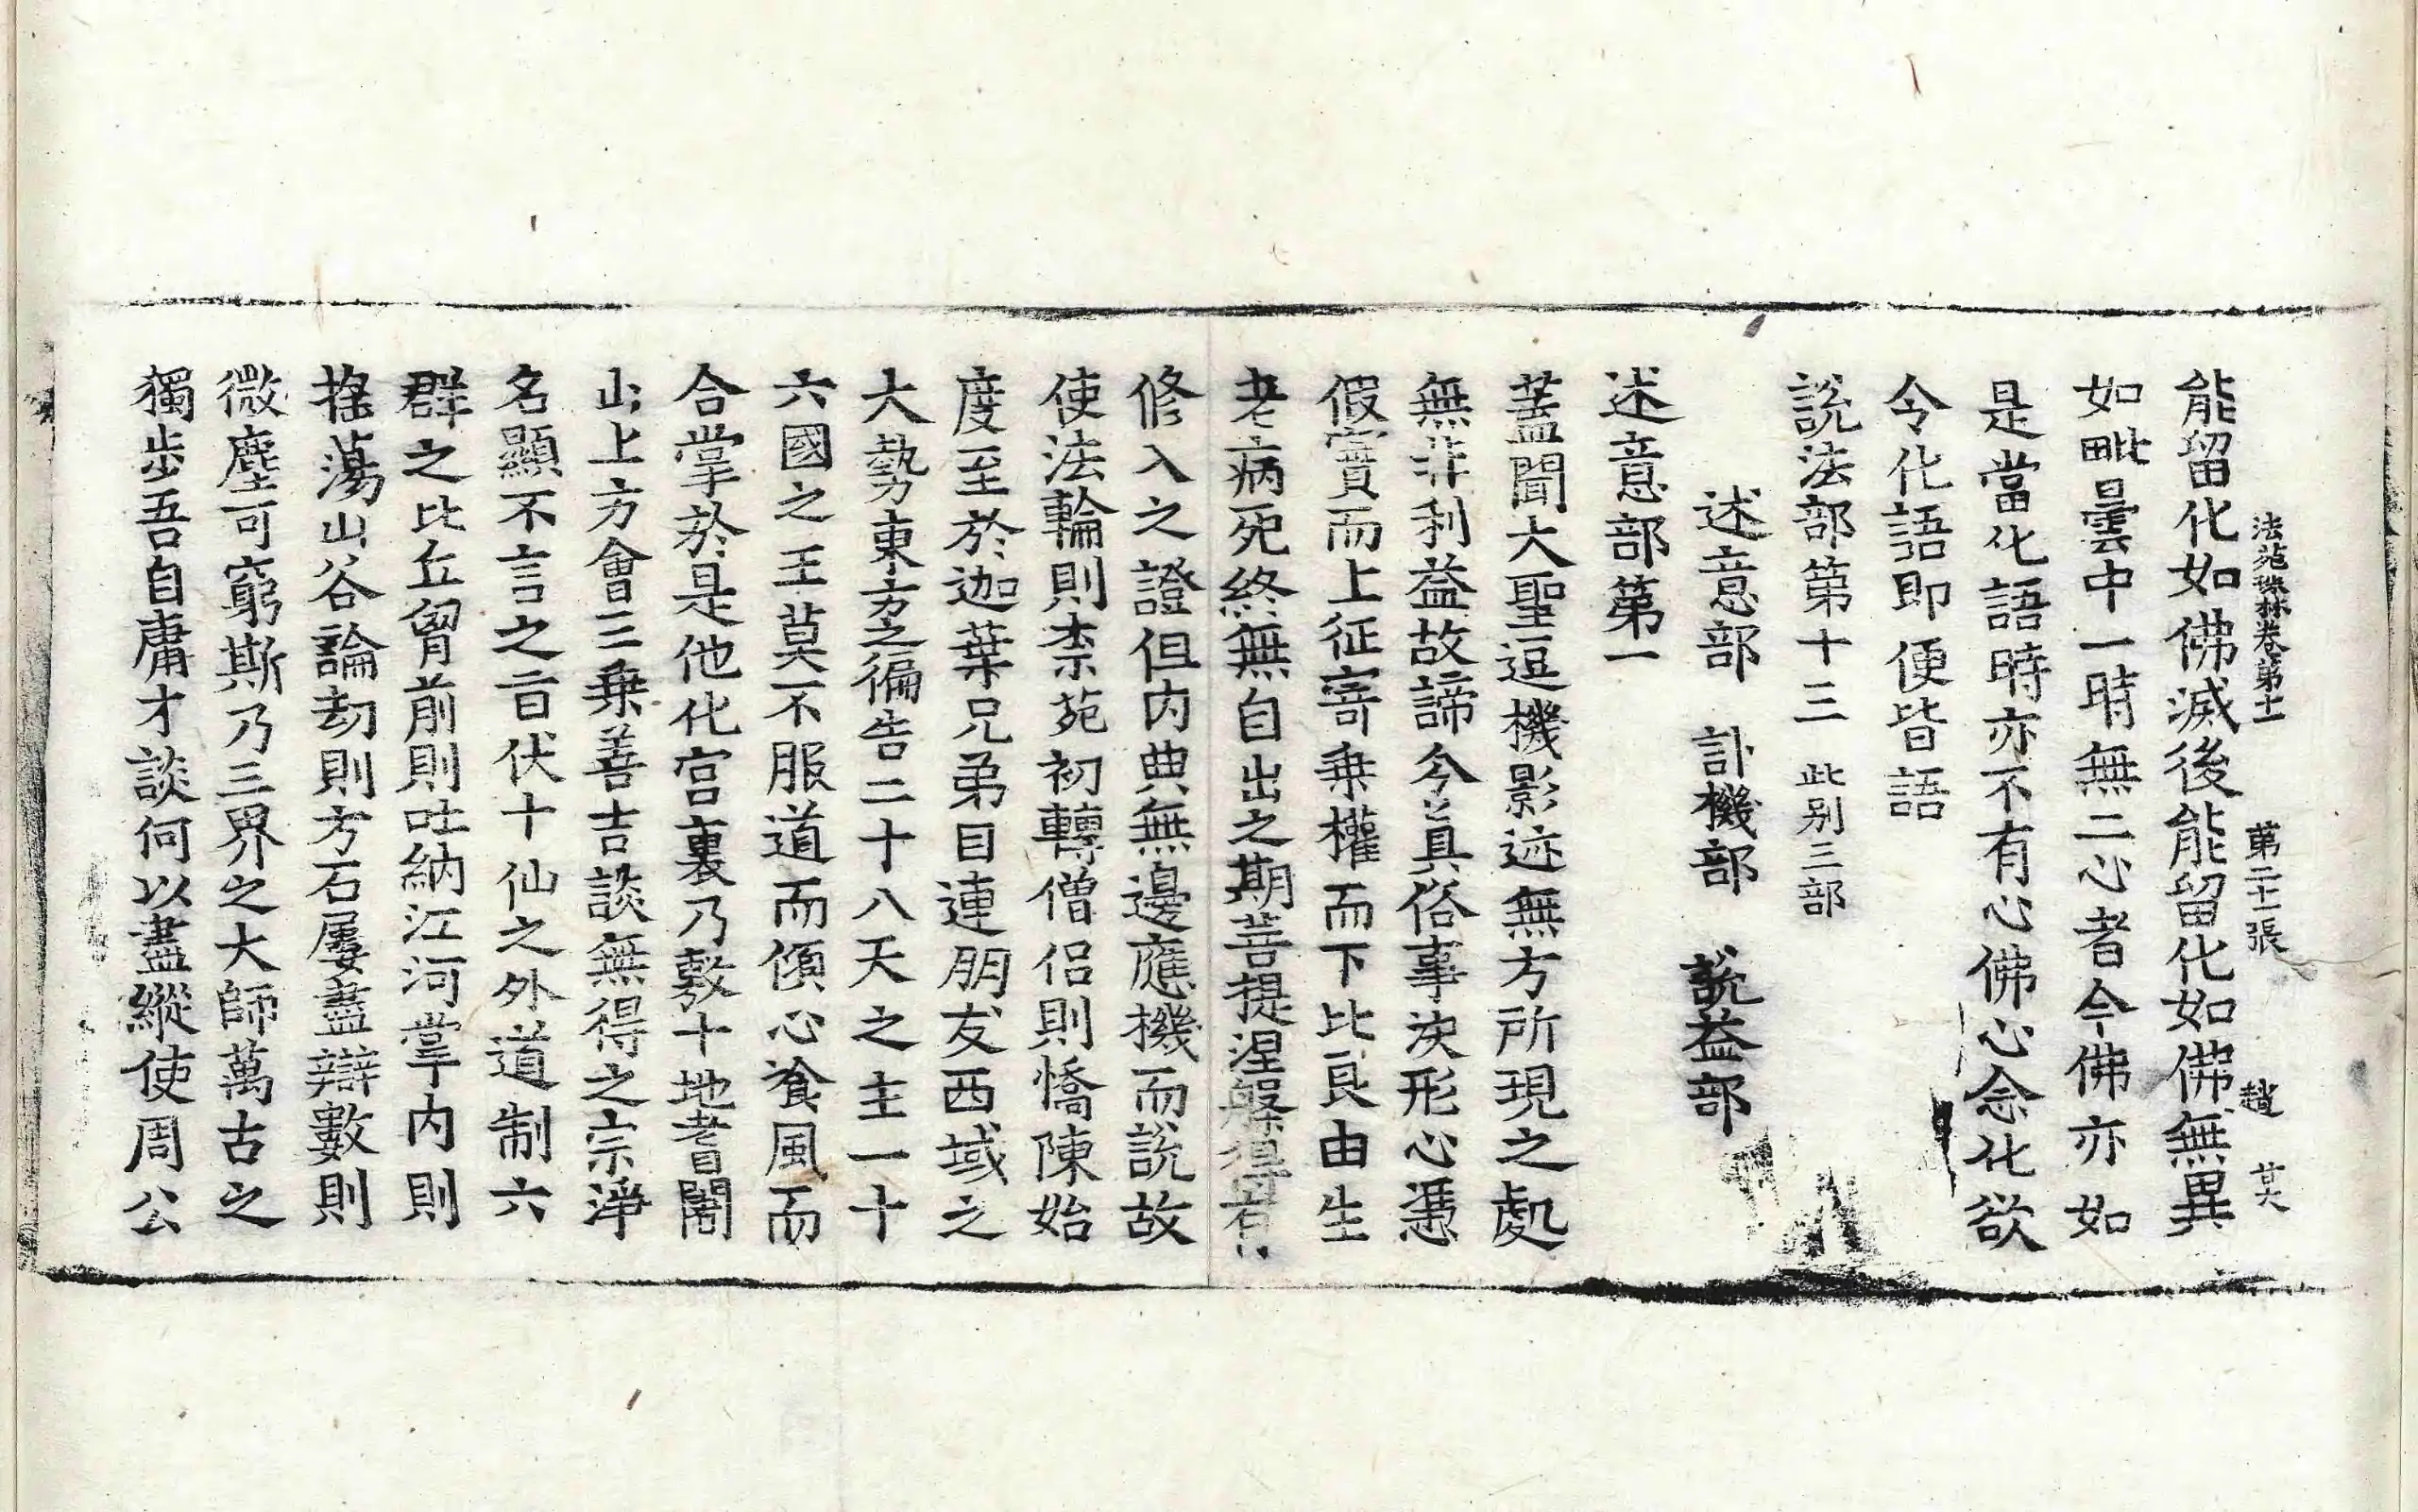 法苑珠林卷第十一 第二十一張 趙 莫
能留化如佛滅後能留化如佛無異
如毗曇中一時無二心者今佛亦如
是當化語時亦不有心佛心念化欲
令化語即便皆語
說法部第十三 此别三部
述意部 訃機部 説益部
述意部第一
蓋聞大聖逗機影迹無方所現之處
無非利益故諦今真俗事決形心憑
假實而上征寄乗權而下比良由生
老病死終無自出之期菩提涅槃得有
修入之證但内典無邊應機而説故
使法輪則柰苑初轉僧侣則憍陳始
度至於迦葉兄弟目連朋友西域之
大勢東方之徧告二十八天之主一十
六國之王莫不服道而傾心飡風而
合掌於是他化宫裏乃敷十地耆闍
山上方會三乗善吉談無得之宗淨
名顯不言之旨伏十仙之外道制六
群之比丘胷前則吐納江河掌内則
揺蕩山谷論劫則方石屢盡辯數則
微塵可窮斯乃三界之大師萬古之
獨步吾自庸才談何以盡縱使周公